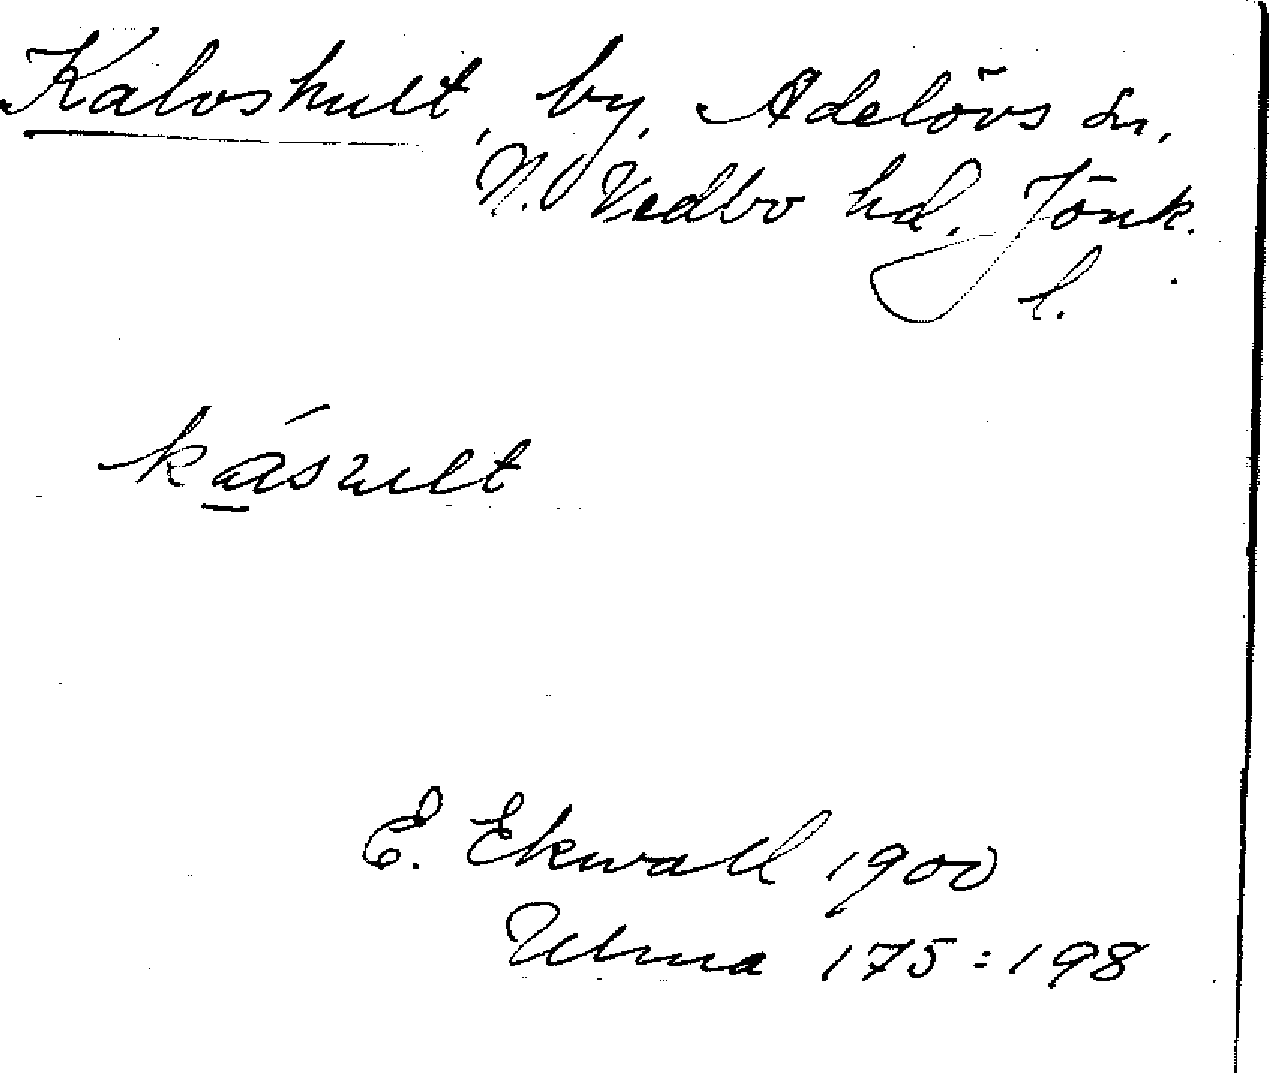 Kalvshult, by, Adelövs sn,
N. Vedbo hd. Jönk.
l.
kásult
E. Ekwall 1900
Ulma 175:198